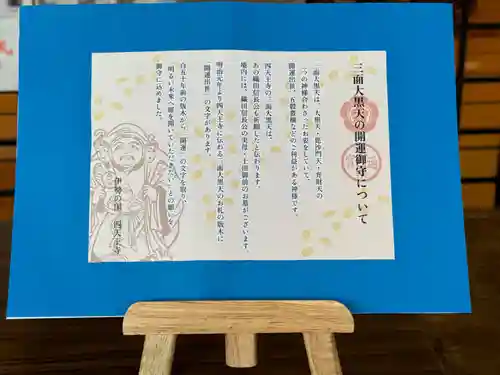 三面大黒天の開運御守について
三面大黒天は、大黒天・毘沙門天・弁財天の
三つの神様合わさったお姿をしていて、
開運出世、五穀豊穣などのご利益がある神様です。
四天王寺の三面大黒天は
あの織田信長公も祈願したと伝わります。
境内には、織田信長公の実母・土田御前のお墓がございます。
明治元年より四天王寺に伝わる三面大黒天のお札の版木に
「開運出世」の文字があります。
百五十年前の版木から「開運」の文字を取り、
「明るい未来へ扉を開いていただきたい」との願いを
御守に込めました。
伊勢の国 四天王寺